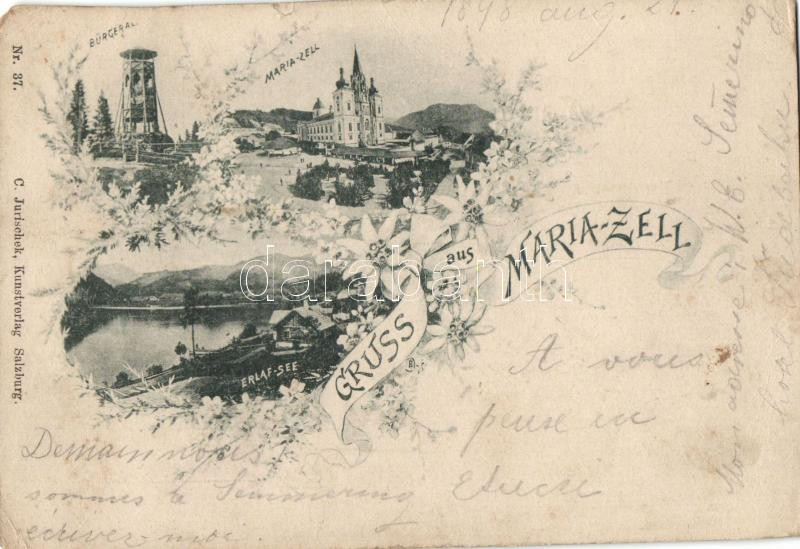 1898 aug. 21.
BÜRGERAL
MARIA-ZELL
Nr. 37.
C. Jurischek, Kunstverlag Salzburg.
GRUSS
aus
MARIA-ZELL
ERLAF-SEE
darabanth
A vous
pense en
Demain nous
sommes à Semmering
écrivez moi.
Mon adresse
Semering
hotel